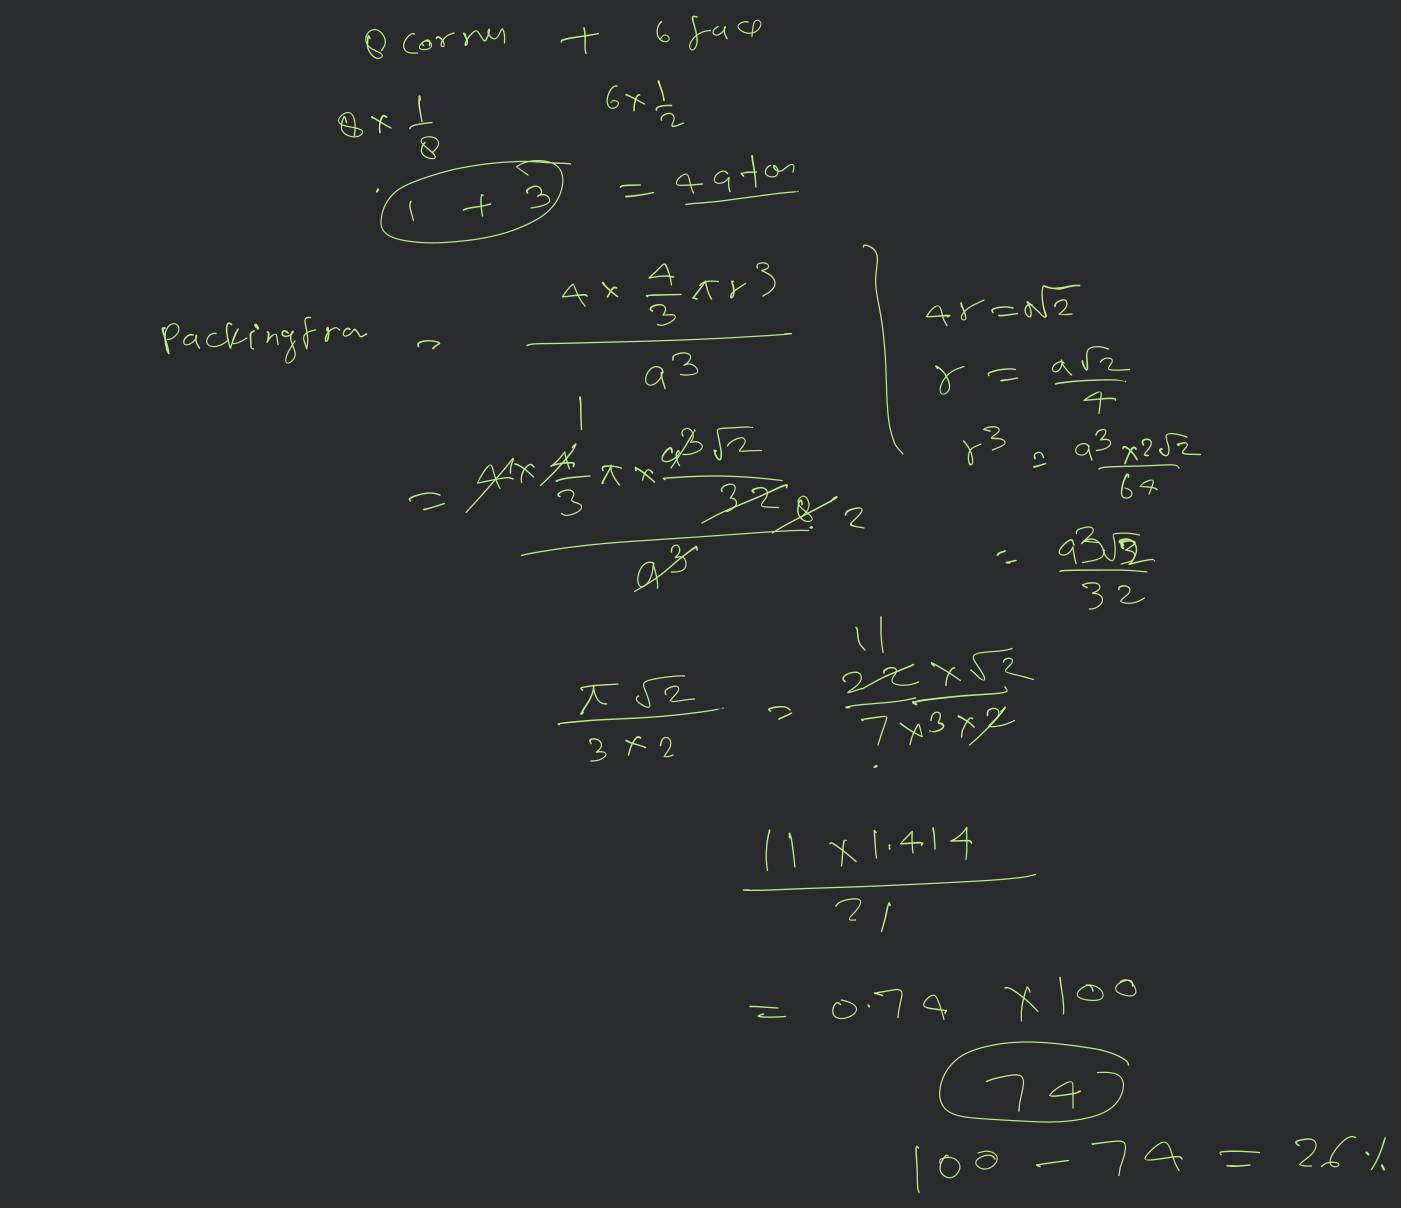 8 corner + 6 face
8 × 1/8    6 × 1/2
1 + 3 = 4 atom
Packing fra = (4 × 4/3 πr³) / a³
4r = a√2
r = a√2 / 4
r³ = a³ × 2√2 / 64
= a³√2 / 32
= (4 × 4/3 π × a³√2 / 32 8 2) / a³    1
π√2 / (3 × 2) = 22 × √2 / (7 × 3 × 2)    11
11 × 1.414 / 21
= 0.74 × 100
74
100 – 74 = 26%